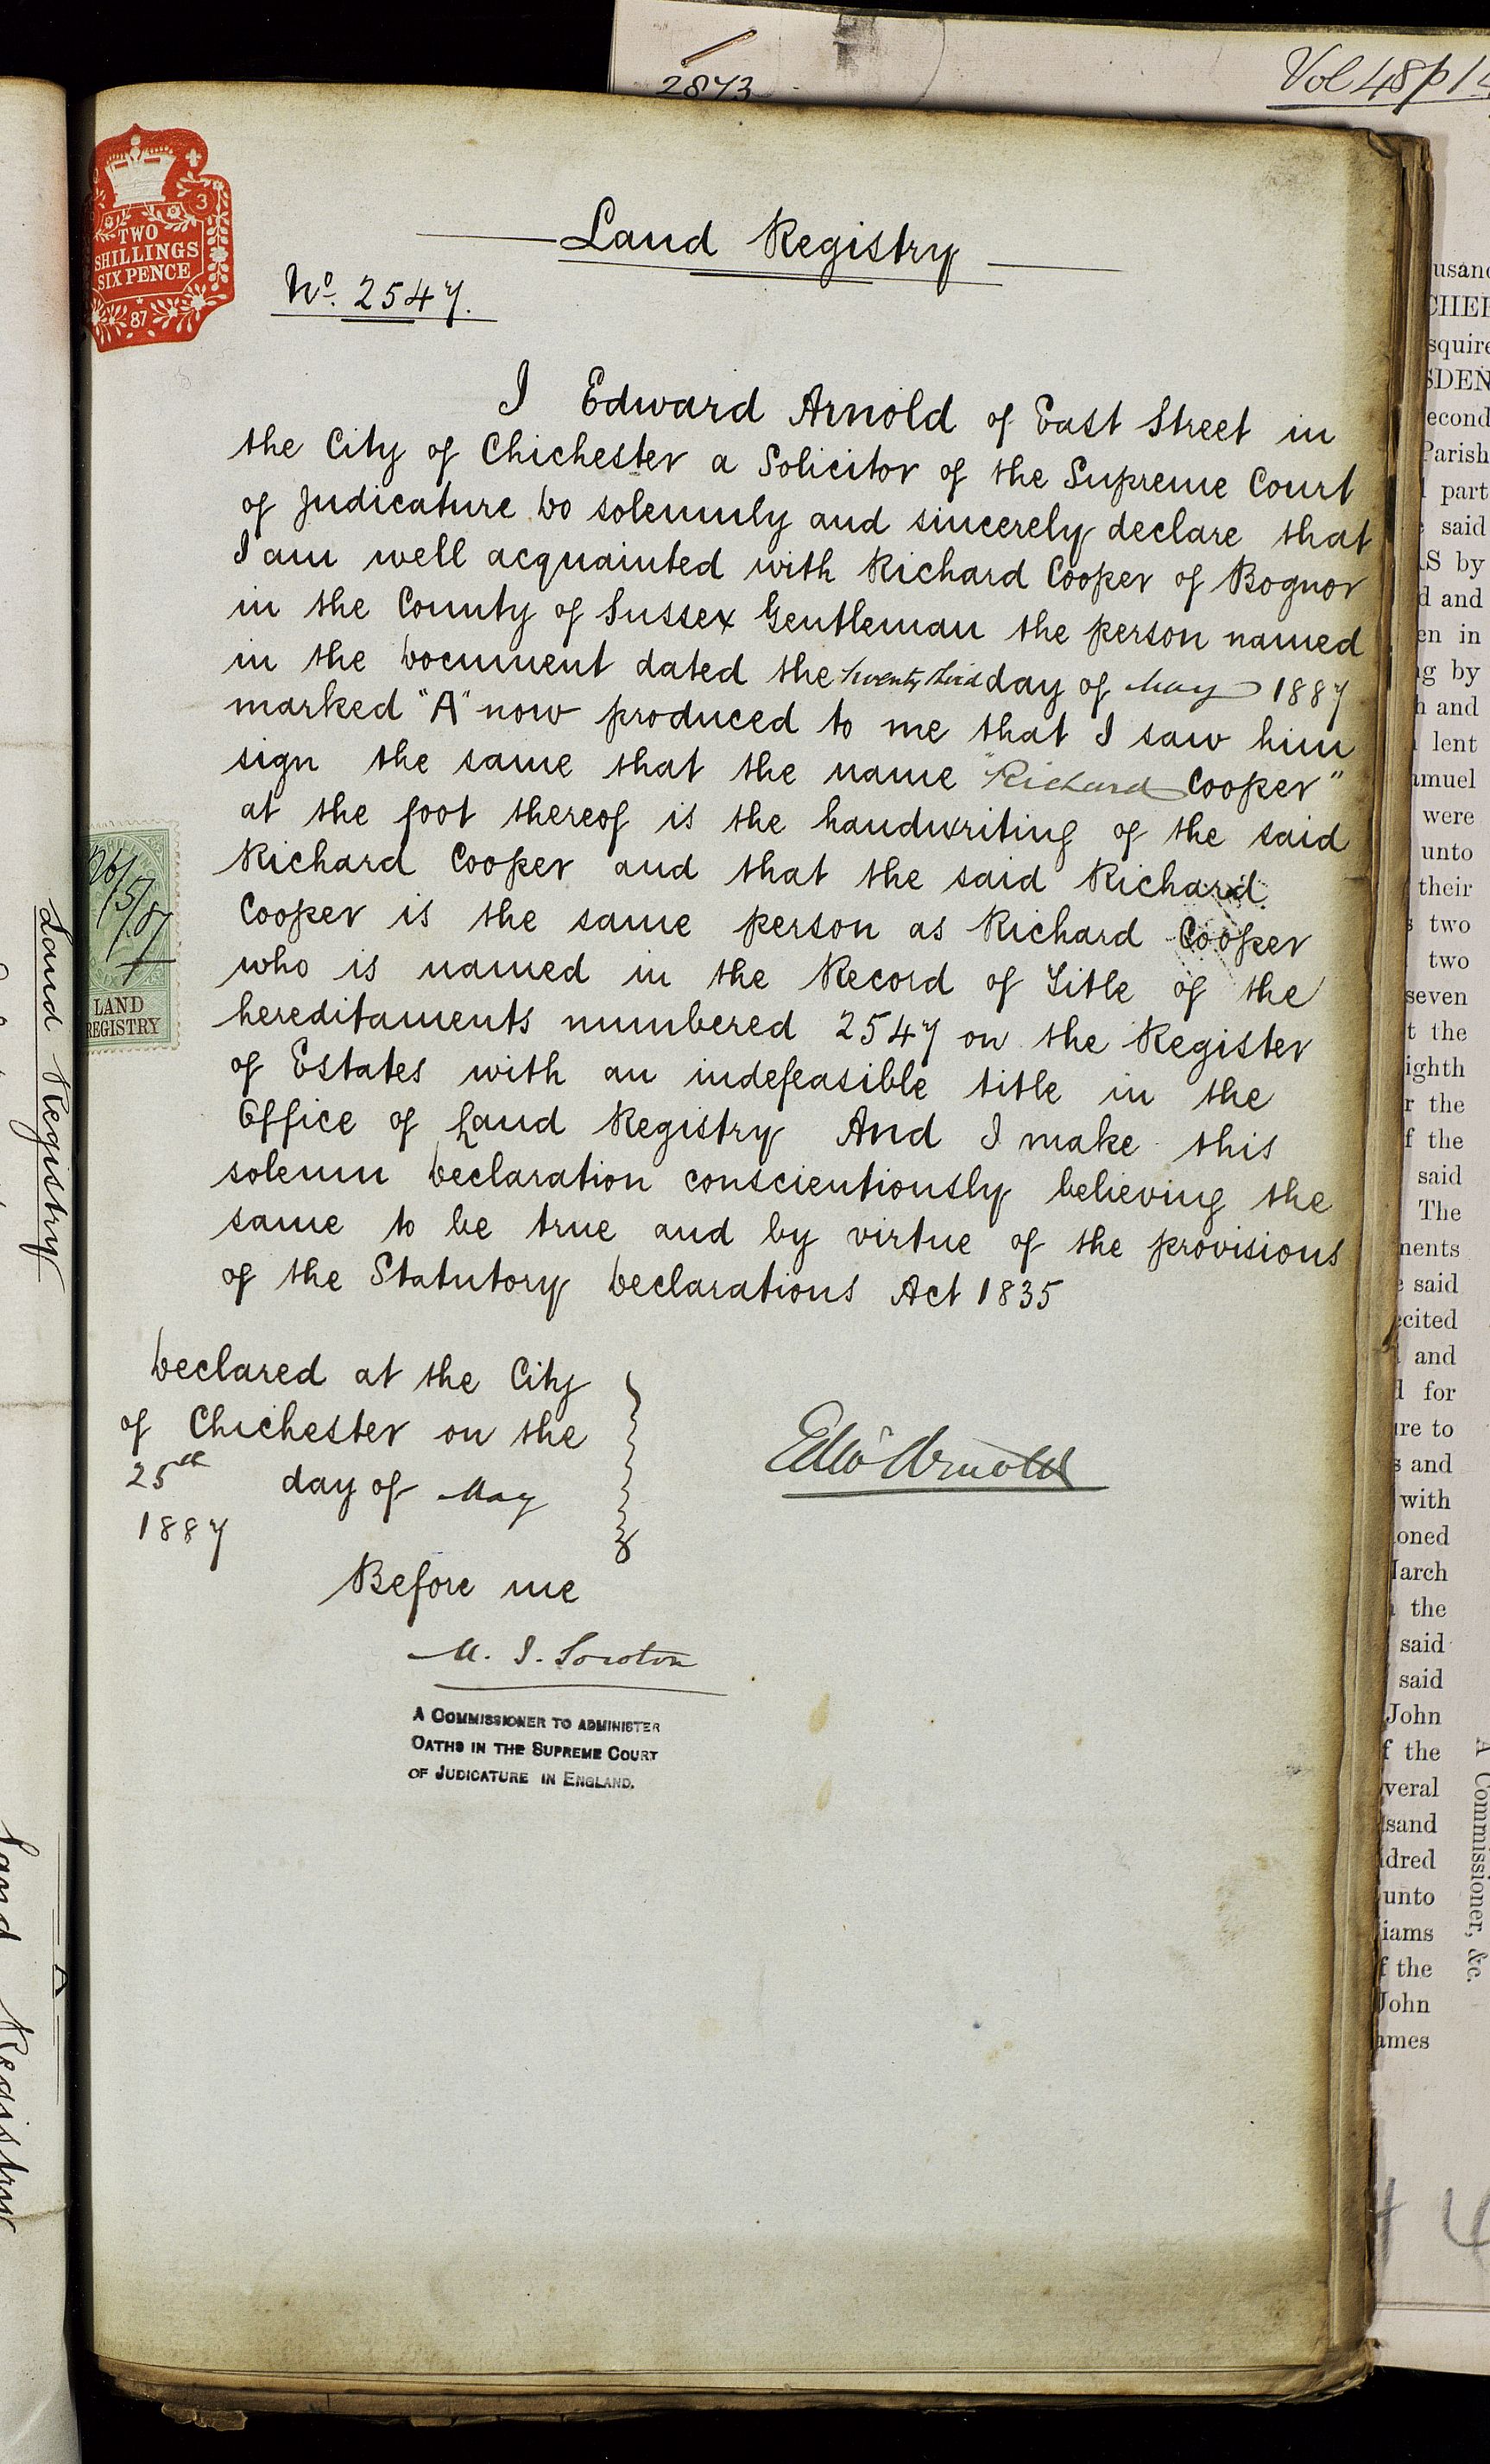 2843
Vol 48 p 1
TWO
SHILLINGS
SIX PENCE
3
87
Land Registry
No. 2547.
I Edward Arnold of East Street in
the City of Chichester a Solicitor of the Supreme Court
of Judicature Do solemnly and sincerely declare that
I am well acquainted with Richard Cooper of Bognor
in the County of Sussex Gentleman the person named
in the Document dated the twenty third day of May 1887
marked "A" now produced to me that I saw him
sign the same that the name "Richard Cooper"
at the foot thereof is the handwriting of the said
Richard Cooper and that the said Richard
Cooper is the same person as Richard Cooper
who is named in the Record of Title of the
hereditaments numbered 2547 on the Register
of Estates with an indefeasible title in the
Office of Land Registry And I make this
solemn Declaration conscientiously believing the
same to be true and by virtue of the provisions
of the Statutory Declarations Act 1835
26/5/87
LAND
REGISTRY
Declared at the City
of Chichester on the
25th day of May
1887
Edwd Arnold
Before me
A COMMISSIONER TO ADMINISTER
OATHS IN THE SUPREME COURT
OF JUDICATURE IN ENGLAND.
Land Registry
A
Land Registry
squire
econd
Parish
part
said
S by
d and
en in
by
and
lent
were
unto
their
two
two
seven
the
the
f the
said
The
said
and
for
to
and
with
March
the
said
said
John
f the
unto
f the
John
A Commissioner, &c.